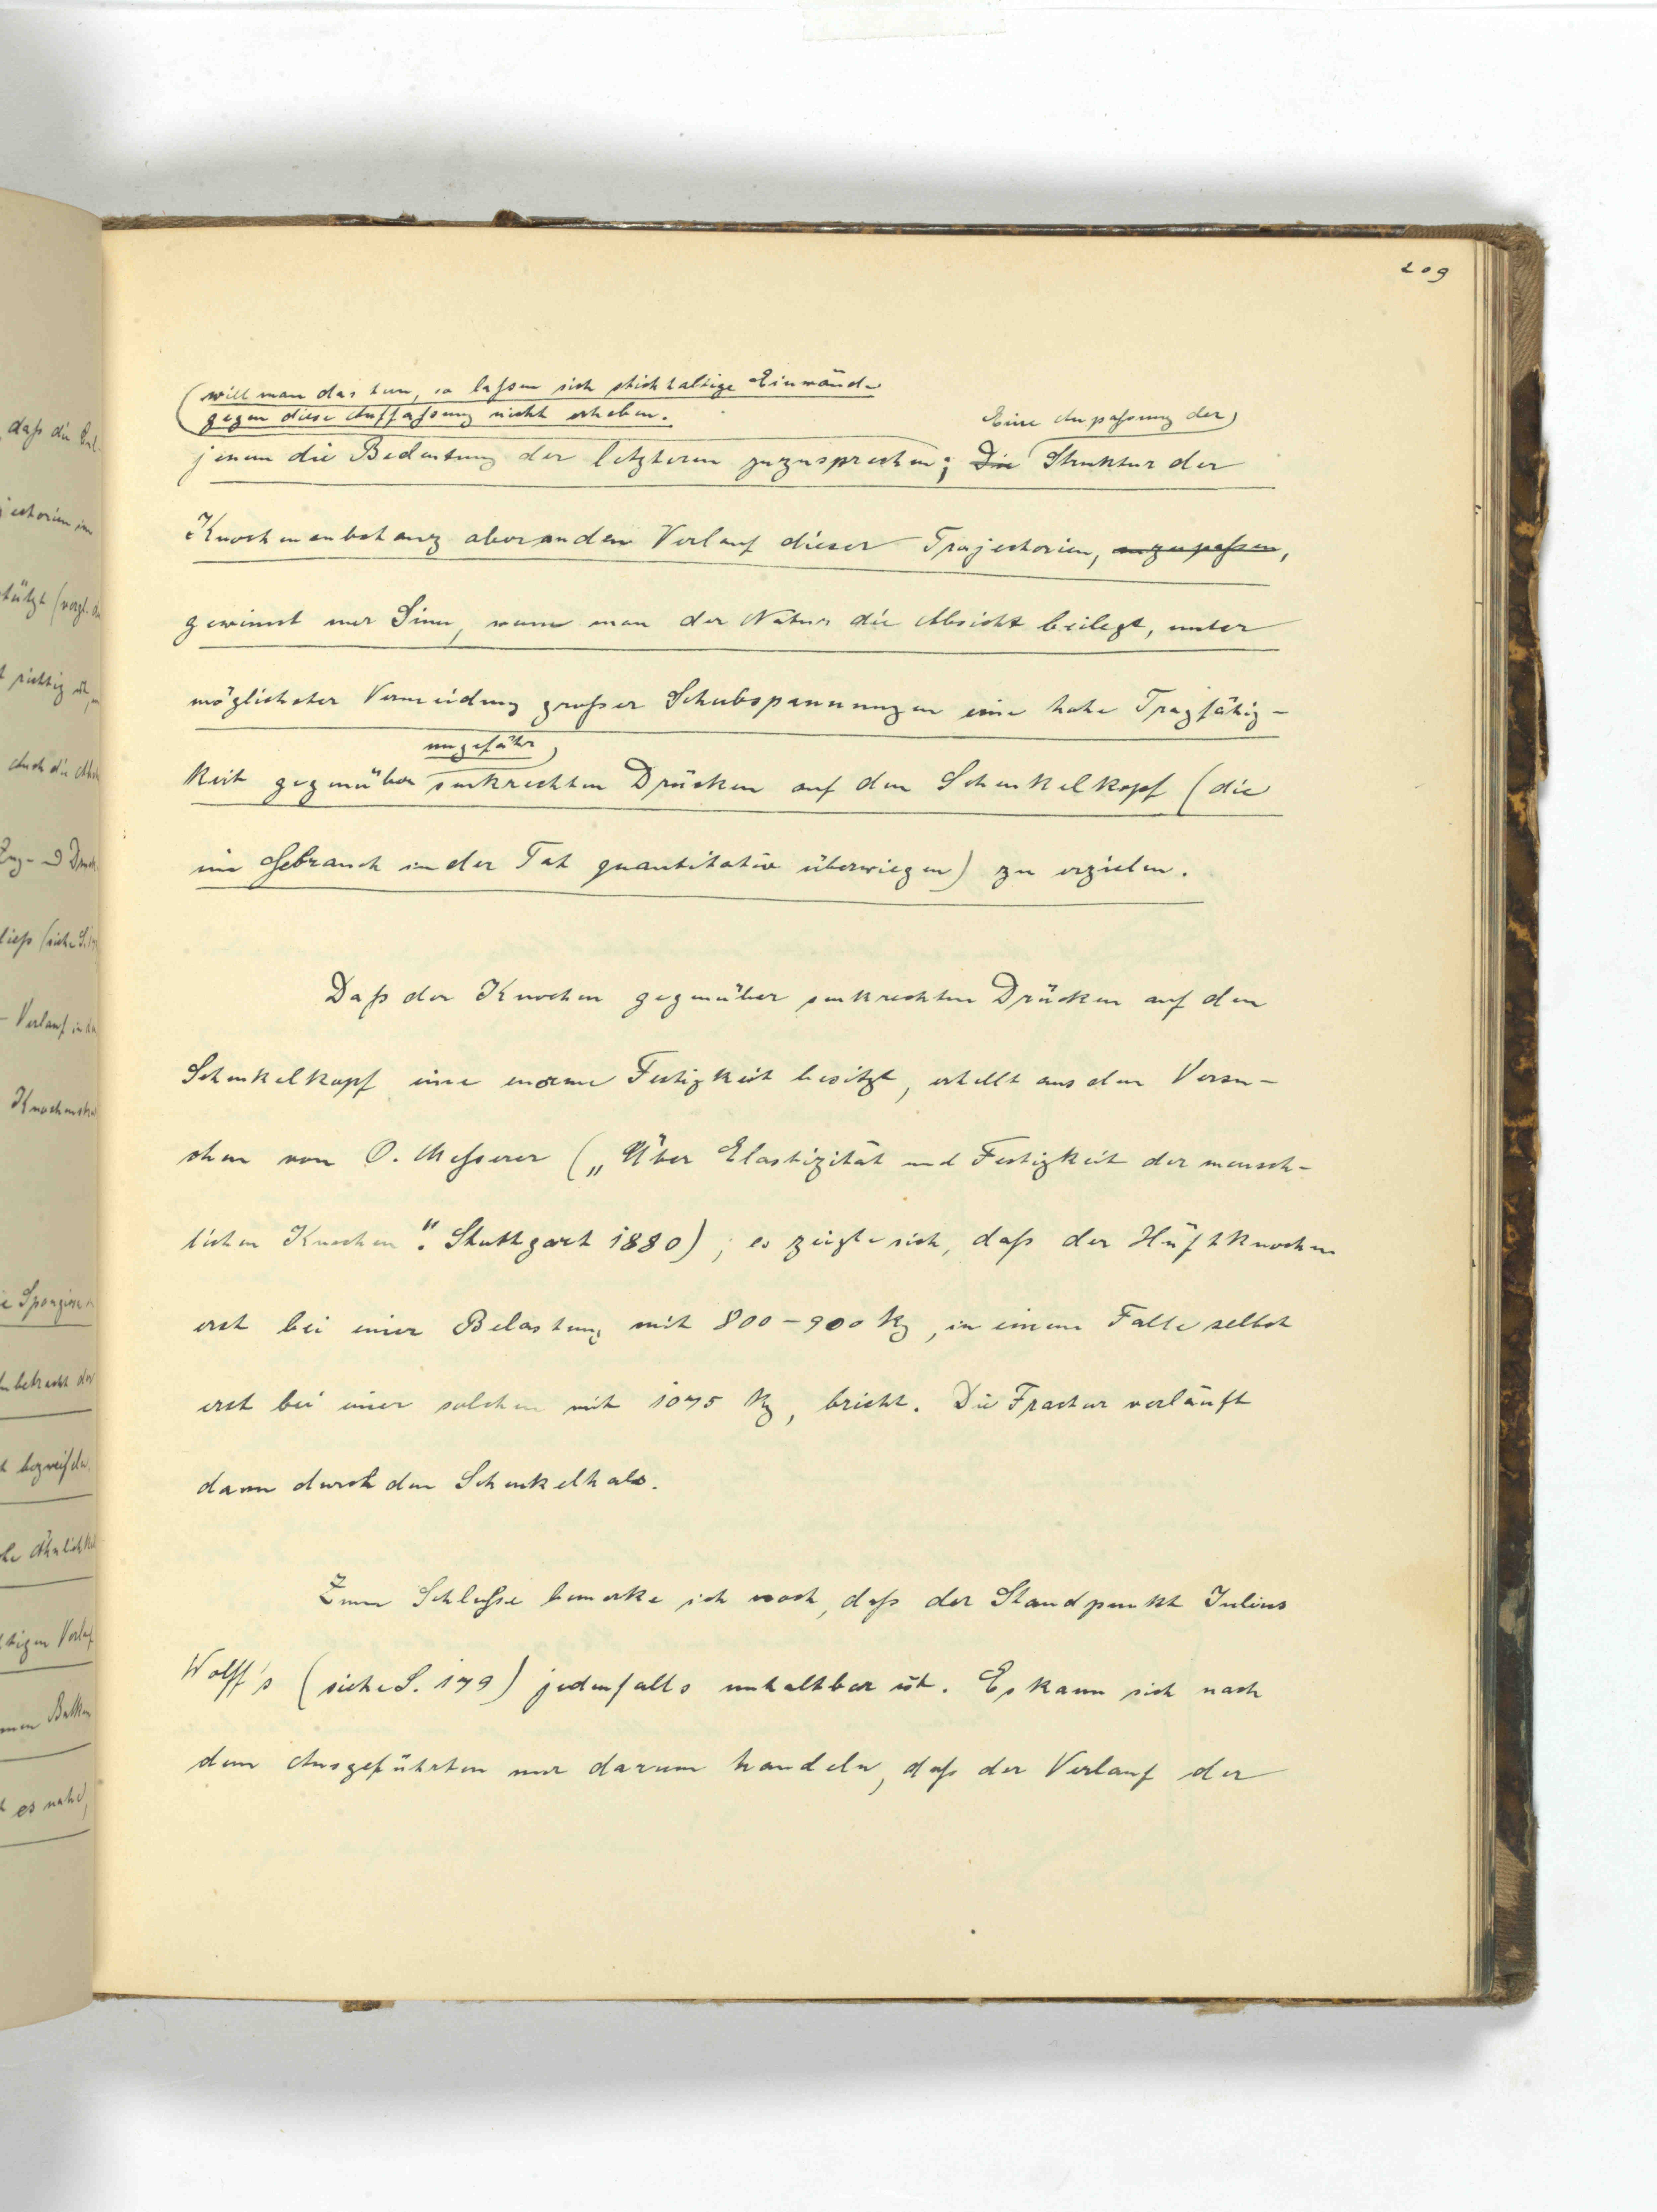 209
will man das tun, so laßen sich stichhaltige Einwände
gegen diese Auffaßung nicht erheben.
Eine Anpaßung der
jenen die Bedeutung der letzteren zuzusprechen; Die Struktur der
Knochensubstanz aber an den Verlauf dieser Trajectorien, anzupaßen,
gewinnt nur Sinn, wenn man der Natur die Absicht beilegt, unter
möglichster Vermeidung großer Schubspannungen eine hohe Tragfähig-
ungefähr
keit gegenüber senkrechten Drücken auf den Schenkelkopf (die
im Gebrauch in der Tat quantitativ überwiegen) zu erzielen.
Daß der Knochen gegenüber senkrechten Drücken auf den
Schenkelkopf eine enorme Festigkeit besitzt, erhellt aus den Versu-
chen von O. Meßerer („Über Elastizität und Festigkeit der mensch-
lichen Knochen“. Stuttgart 1880); es zeigte sich, daß der Hüftknochen
erst bei einer Belastung mit 800-900 kg, in einem Falle selbst
erst bei einer solchen mit 1075 kg, bricht. Die Fractur verläuft
dann durch den Schenkelhals.
Zum Schluße bemerke ich noch, daß der Standpunkt Julius
Wolff's (siehe S. 179) jedenfalls unhaltbar ist. Es kann sich nach
dem Ausgeführten nur darum handeln, daß der Verlauf der